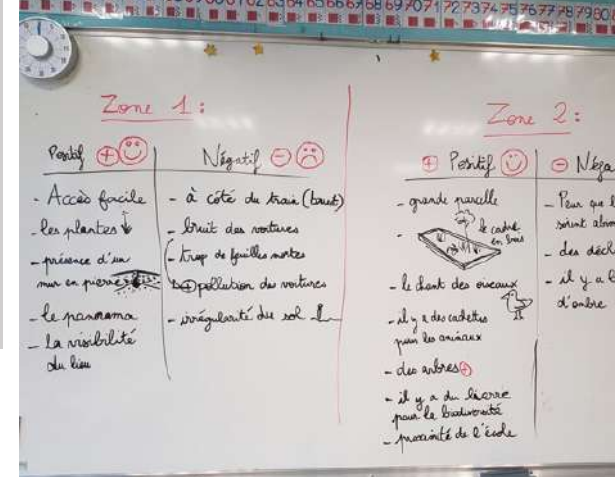 65 66 67 68 69 70 71 72 73 74 75 76 77 78 79 80
Zone 1 :
Positif +
- Accès facile
- les plantes
- présence d'un
mur en pierre
- le panorama
- la visibilité
du lieu
Négatif -
- à côté du train (bruit)
- bruit des voitures
- trop de feuilles mortes
+ pollution des voitures
- irrégularité du sol
Zone 2 :
+ Positif
- grande parcelle
- le cadre
en bois
- le chant des oiseaux
- il y a des cachettes
pour les animaux
- des arbres +
- il y a du lierre
pour la biodiversité
- proximité de l'école
- Néga
- Peur que l
soient
- des déch
- il y a b
d'ombre